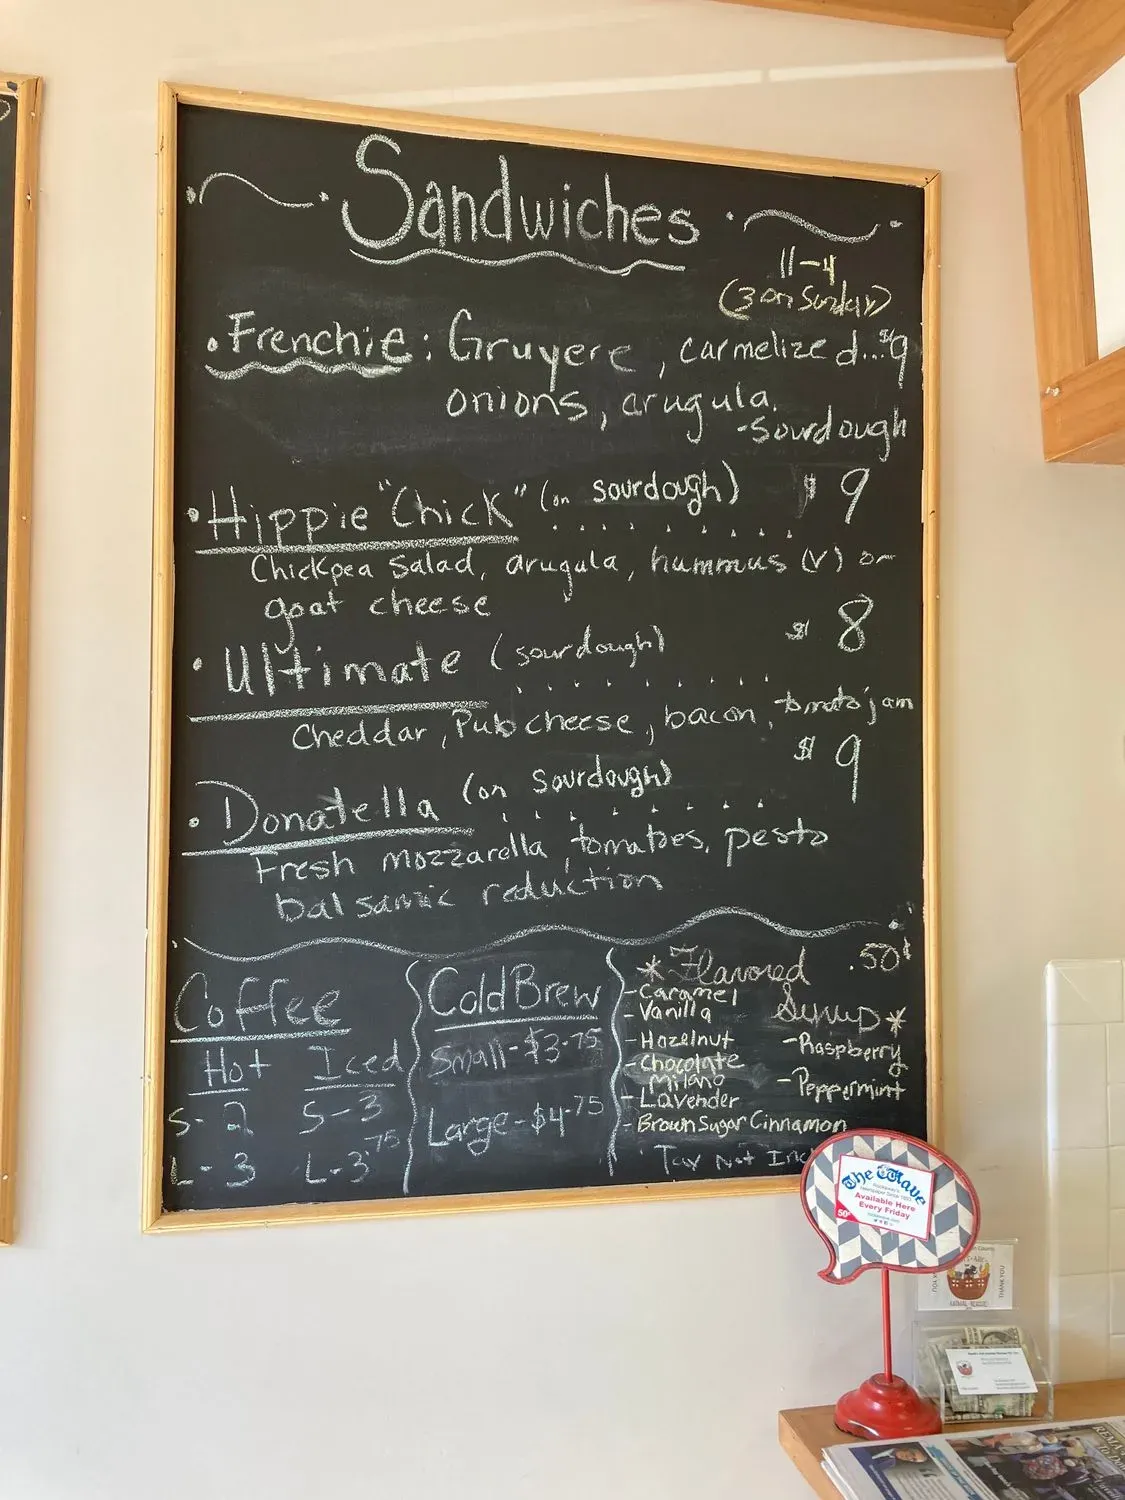 Sandwiches
11-4
(3 on Sunday)
• Frenchie: Gruyere, carmelized...$9
onions, arugula.
-Sourdough
• Hippie "Chick" (on sourdough) ......... $9
Chickpea salad, arugula, hummus (v) or
goat cheese
• Ultimate (sourdough) ......... $8
Cheddar, Pub cheese, bacon, tomato jam
• Donatella (on Sourdough) ....... $9
Fresh mozzarella, tomatoes, pesto
balsamic reduction
Coffee
Hot Iced
S-2 S-3
L-3 L-3.75
Cold Brew
Small-$3.75
Large-$4.75
*Flavored .50¢
Syrup*
-Caramel
-Vanilla
-Hazelnut
-Chocolate
Milano
-Lavender
-Brown Sugar Cinnamon
-Raspberry
-Peppermint
Tax Not Inc
The Wave
Rockaway's
Newspaper Since 1893
Available Here
Every Friday
50¢
THANK YOU
ANIMAL RESCUE